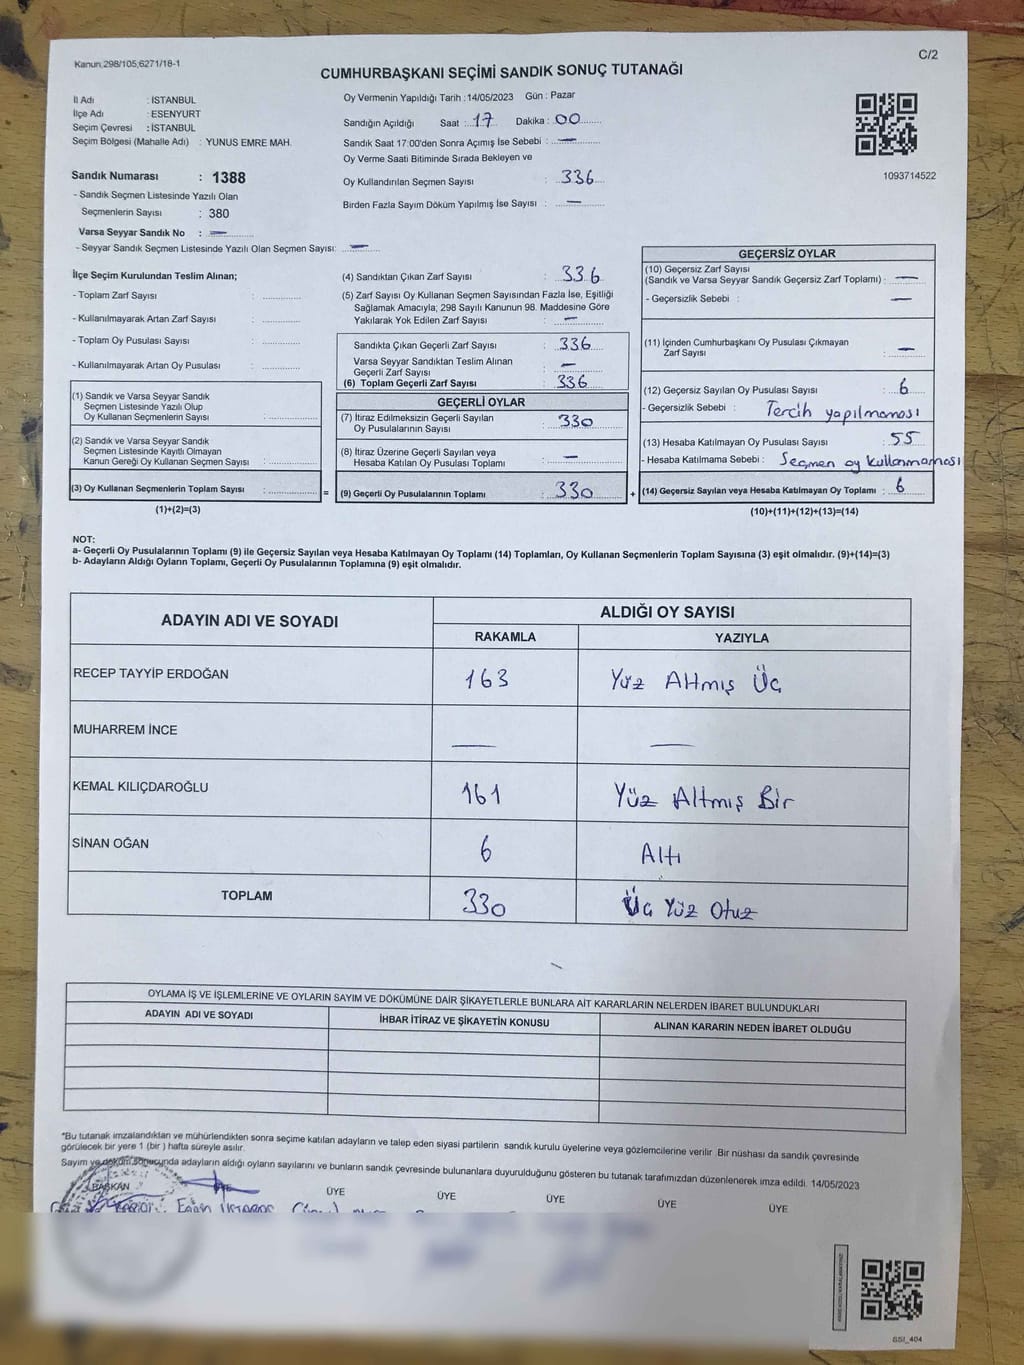 Kanun,298/105;6271/18-1
C/2
CUMHURBAŞKANI SEÇİMİ SANDIK SONUÇ TUTANAĞI
İl Adı : İSTANBUL
İlçe Adı : ESENYURT
Seçim Çevresi : İSTANBUL
Seçim Bölgesi (Mahalle Adı) : YUNUS EMRE MAH.
Oy Vermenin Yapıldığı Tarih : 14/05/2023 Gün : Pazar
Sandığın Açıldığı Saat : 17 Dakika : 00
Sandık Saat 17:00'den Sonra Açımış İse Sebebi : —
Oy Verme Saati Bitiminde Sırada Bekleyen ve
Oy Kullandırılan Seçmen Sayısı : 336
Birden Fazla Sayım Döküm Yapılmış İse Sayısı : —
1093714522
Sandık Numarası : 1388
- Sandık Seçmen Listesinde Yazılı Olan
Seçmenlerin Sayısı : 380
Varsa Seyyar Sandık No : —
- Seyyar Sandık Seçmen Listesinde Yazılı Olan Seçmen Sayısı: —
İlçe Seçim Kurulundan Teslim Alınan;
- Toplam Zarf Sayısı :
- Kullanılmayarak Artan Zarf Sayısı :
- Toplam Oy Pusulası Sayısı :
- Kullanılmayarak Artan Oy Pusulası :
(1) Sandık ve Varsa Seyyar Sandık
Seçmen Listesinde Yazılı Olup
Oy Kullanan Seçmenlerin Sayısı :
(2) Sandık ve Varsa Seyyar Sandık
Seçmen Listesinde Kayıtlı Olmayan
Kanun Gereği Oy Kullanan Seçmen Sayısı :
(3) Oy Kullanan Seçmenlerin Toplam Sayısı : =
(1)+(2)=(3)
(4) Sandıktan Çıkan Zarf Sayısı : 336
(5) Zarf Sayısı Oy Kullanan Seçmen Sayısından Fazla İse, Eşitliği
Sağlamak Amacıyla; 298 Sayılı Kanunun 98. Maddesine Göre
Yakılarak Yok Edilen Zarf Sayısı : —
Sandıkta Çıkan Geçerli Zarf Sayısı : 336
Varsa Seyyar Sandıktan Teslim Alınan
Geçerli Zarf Sayısı : —
(6) Toplam Geçerli Zarf Sayısı : 336
GEÇERLİ OYLAR
(7) İtiraz Edilmeksizin Geçerli Sayılan
Oy Pusulalarının Sayısı : 330
(8) İtiraz Üzerine Geçerli Sayılan veya
Hesaba Katılan Oy Pusulası Toplamı : —
(9) Geçerli Oy Pusulalarının Toplamı : 330 +
GEÇERSİZ OYLAR
(10) Geçersiz Zarf Sayısı
(Sandık ve Varsa Seyyar Sandık Geçersiz Zarf Toplamı) : —
- Geçersizlik Sebebi : —
(11) İçinden Cumhurbaşkanı Oy Pusulası Çıkmayan
Zarf Sayısı : —
(12) Geçersiz Sayılan Oy Pusulası Sayısı : 6
- Geçersizlik Sebebi : Tercih yapılmaması
(13) Hesaba Katılmayan Oy Pusulası Sayısı : 55
- Hesaba Katılmama Sebebi : Seçmen oy kullanmaması
(14) Geçersiz Sayılan veya Hesaba Katılmayan Oy Toplamı : 6
(10)+(11)+(12)+(13)=(14)
NOT:
a- Geçerli Oy Pusulalarının Toplamı (9) ile Geçersiz Sayılan veya Hesaba Katılmayan Oy Toplamı (14) Toplamları, Oy Kullanan Seçmenlerin Toplam Sayısına (3) eşit olmalıdır. (9)+(14)=(3)
b- Adayların Aldığı Oyların Toplamı, Geçerli Oy Pusulalarının Toplamına (9) eşit olmalıdır.
ADAYIN ADI VE SOYADI
ALDIĞI OY SAYISI
RAKAMLA YAZIYLA
RECEP TAYYİP ERDOĞAN 163 Yüz Altmış Üç
MUHARREM İNCE — —
KEMAL KILIÇDAROĞLU 161 Yüz Altmış Bir
SİNAN OĞAN 6 Altı
TOPLAM 330 Üç Yüz Otuz
OYLAMA İŞ VE İŞLEMLERİNE VE OYLARIN SAYIM VE DÖKÜMÜNE DAİR ŞİKAYETLERLE BUNLARA AİT KARARLARIN NELERDEN İBARET BULUNDUKLARI
ADAYIN ADI VE SOYADI İHBAR İTİRAZ VE ŞİKAYETİN KONUSU ALINAN KARARIN NEDEN İBARET OLDUĞU
*Bu tutanak imzalandıktan ve mühürlendikten sonra seçime katılan adayların ve talep eden siyasi partilerin sandık kurulu üyelerine veya gözlemcilerine verilir. Bir nüshası da sandık çevresinde
görülecek bir yere 1 (bir) hafta süreyle asılır.
Sayım ve döküm sonucunda adayların aldığı oyların sayılarını ve bunların sandık çevresinde bulunanlara duyurulduğunu gösteren bu tutanak tarafımızdan düzenlenerek imza edildi. 14/05/2023
BAŞKAN ÜYE ÜYE ÜYE ÜYE ÜYE ÜYE
SSI_404